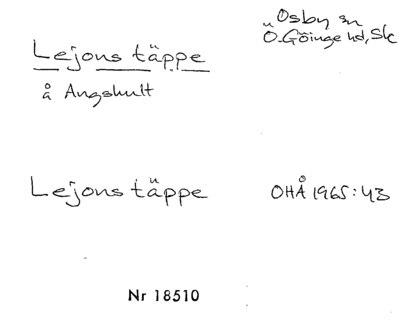 Osby sn
Ö. Göinge hd, Sk
Lejons täppe
å Angshult
Lejons täppe
OHÅ 1965:43
Nr 18510